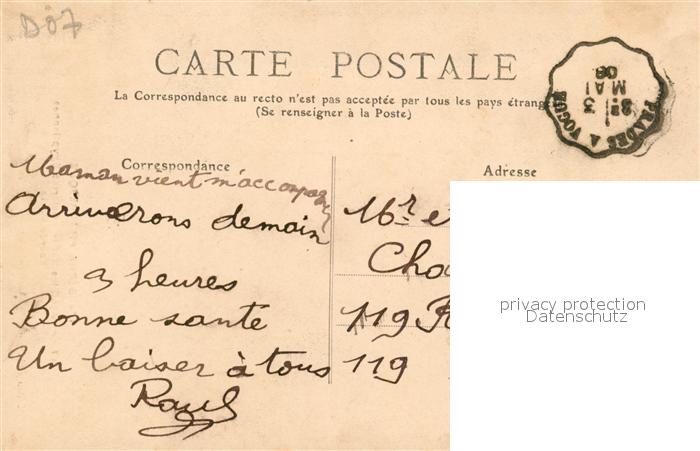 D07
CARTE POSTALE
La Correspondance au recto n'est pas acceptée par tous les pays étrang
(Se renseigner à la Poste)
PRADES A VOGUE
3
MAI
08
Correspondance
Adresse
Maman vient m'accompagner
Arriverons demain
heures
Bonne santé
Un baiser à tous
Raoul
Mr e
Cha
119 R
119
privacy protection
Datenschutz